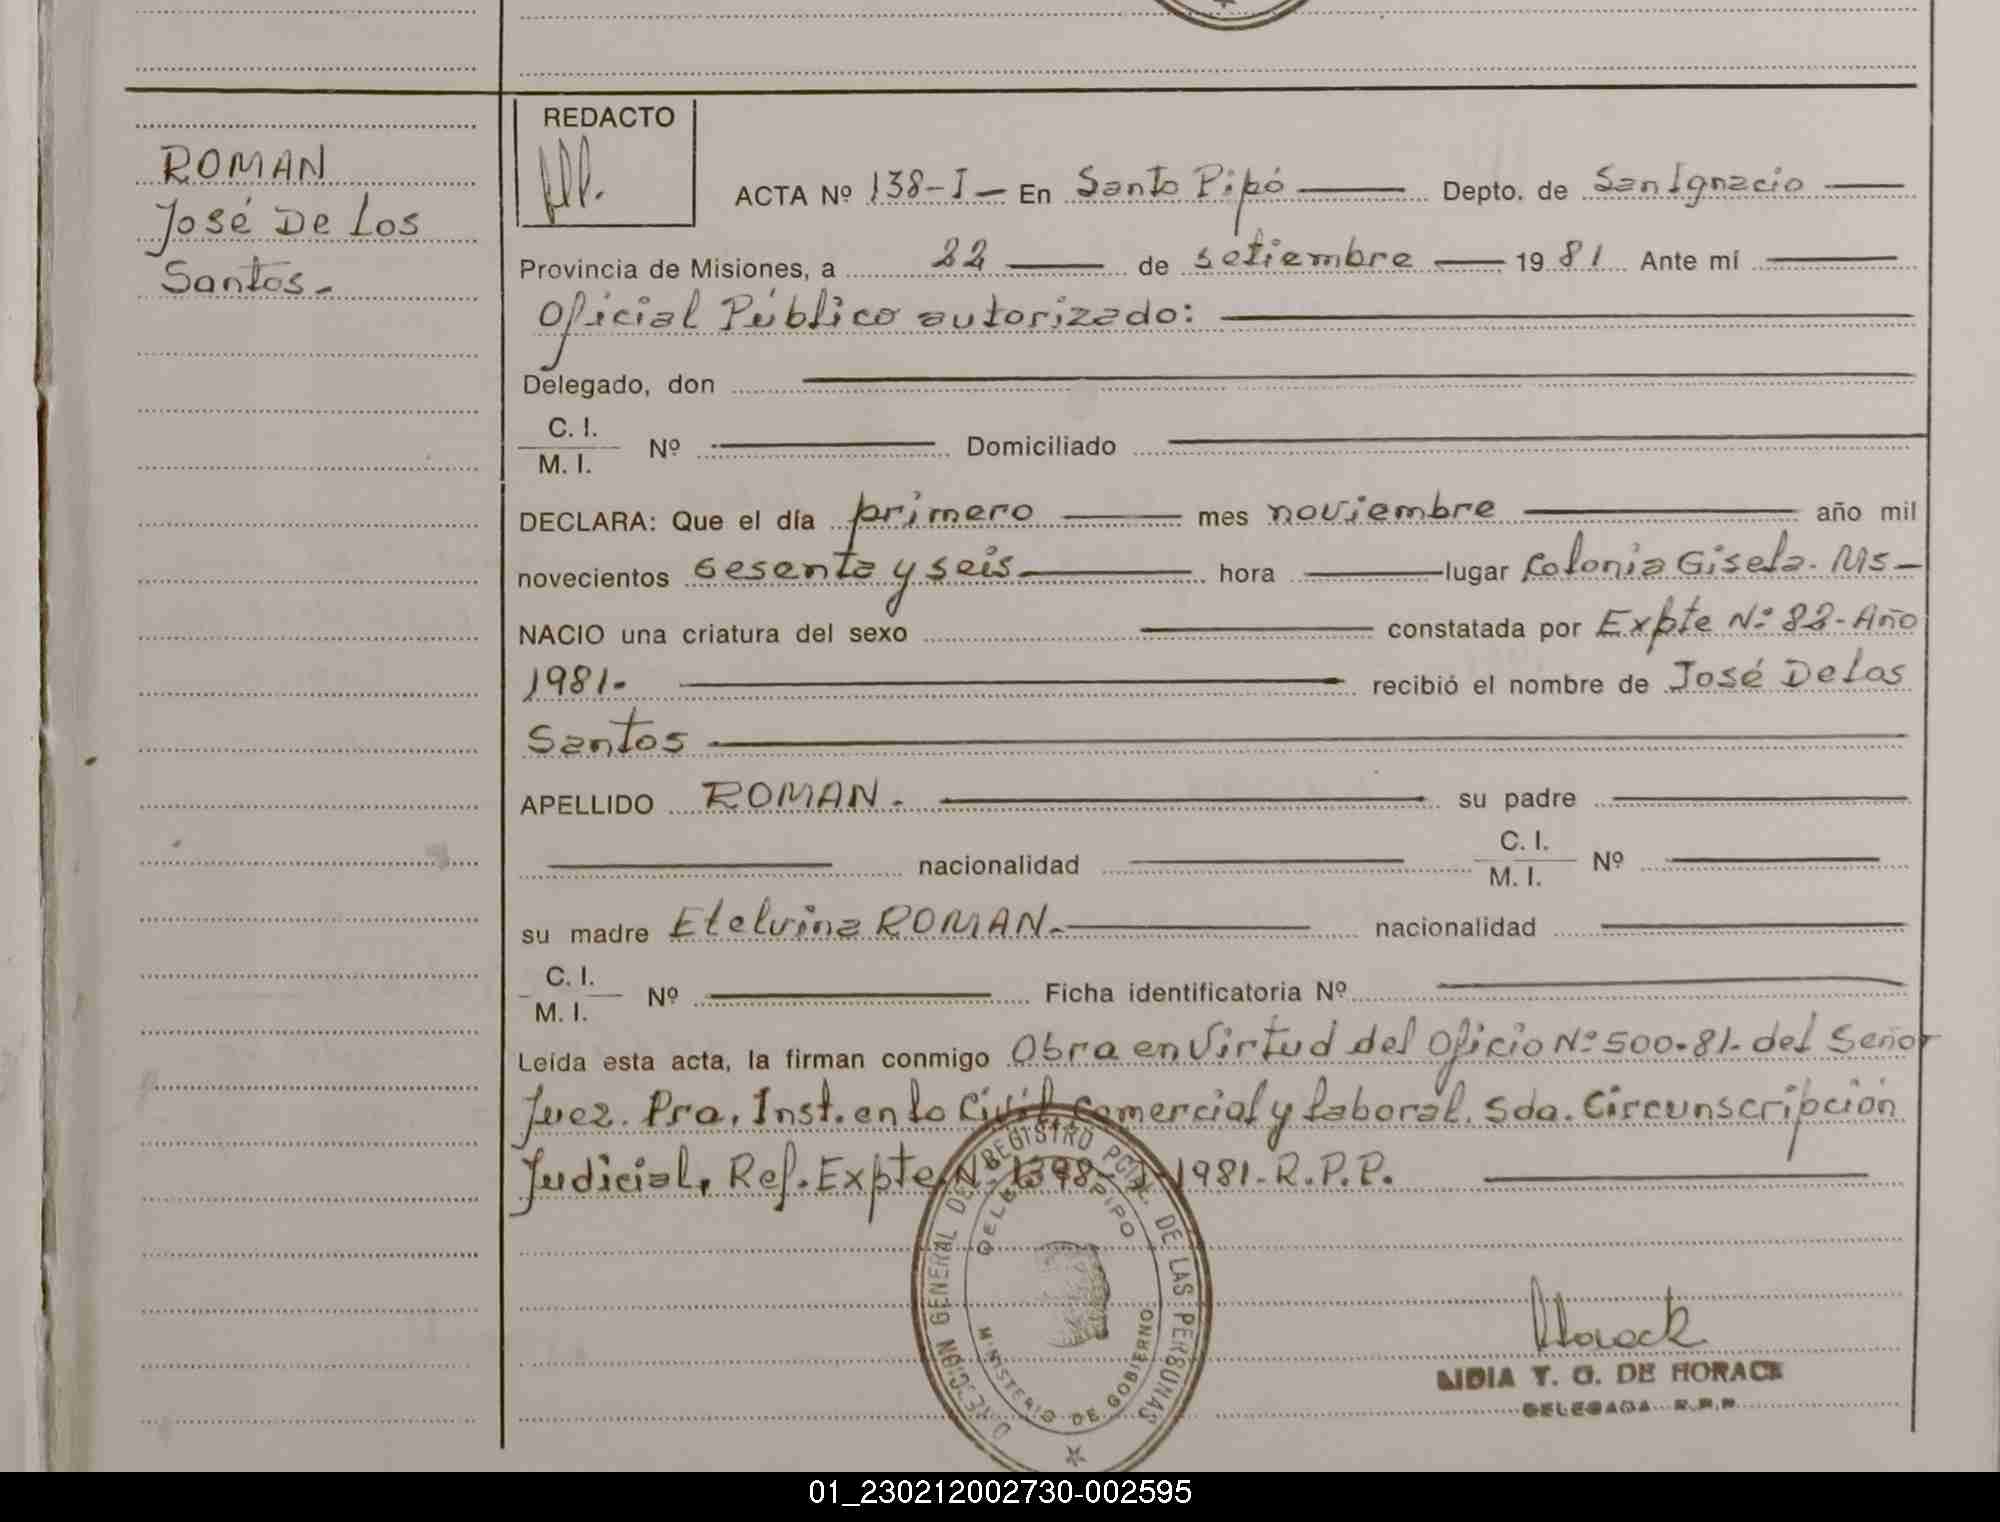 ROMAN
José De Los
Santos.-
REDACTO
ACTA Nº 138-I- En Santo Pipó Depto. de San Ignacio
Provincia de Misiones, a 22 de setiembre 1981 Ante mí
Oficial Público autorizado:
Delegado, don
C. I.
M. I. Nº Domiciliado
DECLARA: Que el día primero mes noviembre año mil
novecientos sesenta y seis hora lugar Colonia Gisela. Ms-
NACIO una criatura del sexo constatada por Expte Nº 82-Año
1981- recibió el nombre de José De Los
Santos
APELLIDO ROMAN.- su padre
nacionalidad C. I.
M. I. Nº
su madre Etelvina ROMAN.- nacionalidad
C. I.
M. I. Nº Ficha identificatoria Nº
Leída esta acta, la firman conmigo Obra en Virtud del Oficio Nº 500-81- del Señor
Juez. Pra. Inst. en lo Civil Comercial y laboral. Sda. Circunscripción
Judicial, Ref. Expte Nº 1398- 1981-R.P.P.
DIRECCION GENERAL DEL REGISTRO PCIAL. DE LAS PERSONAS
PIPO
MINISTERIO DE GOBIERNO
Horack
LIDIA T. G. DE HORACK
DELEGADA R.P.P.
01_230212002730-002595